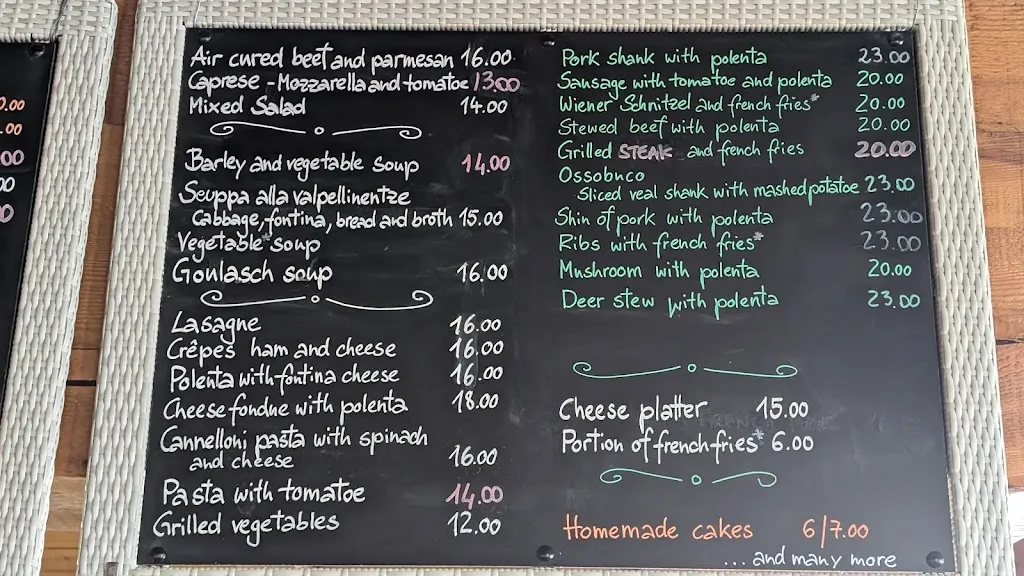 0.00
.00
00
00
0
Air cured beef and parmesan 16.00
Caprese - Mozzarella and tomatoe 13.00
Mixed Salad 14.00
Barley and vegetable soup 14.00
Seuppa alla valpellinentze
Cabbage, fontina, bread and broth 15.00
Vegetable soup
Goulasch soup 16.00
Lasagne 16.00
Crêpes ham and cheese 16.00
Polenta with fontina cheese 16.00
Cheese fondue with polenta 18.00
Cannelloni pasta with spinach
and cheese 16.00
Pasta with tomatoe 14.00
Grilled vegetables 12.00
Pork shank with polenta 23.00
Sausage with tomatoe and polenta 20.00
Wiener Schnitzel and french fries* 20.00
Stewed beef with polenta 20.00
Grilled STEAK and french fries 20.00
Ossobuco
Sliced veal shank with mashed potatoe 23.00
Shin of pork with polenta 23.00
Ribs with french fries* 23.00
Mushroom with polenta 20.00
Deer stew with polenta 23.00
Cheese platter 15.00
Portion of french fries* 6.00
Homemade cakes 6/7.00
...and many more